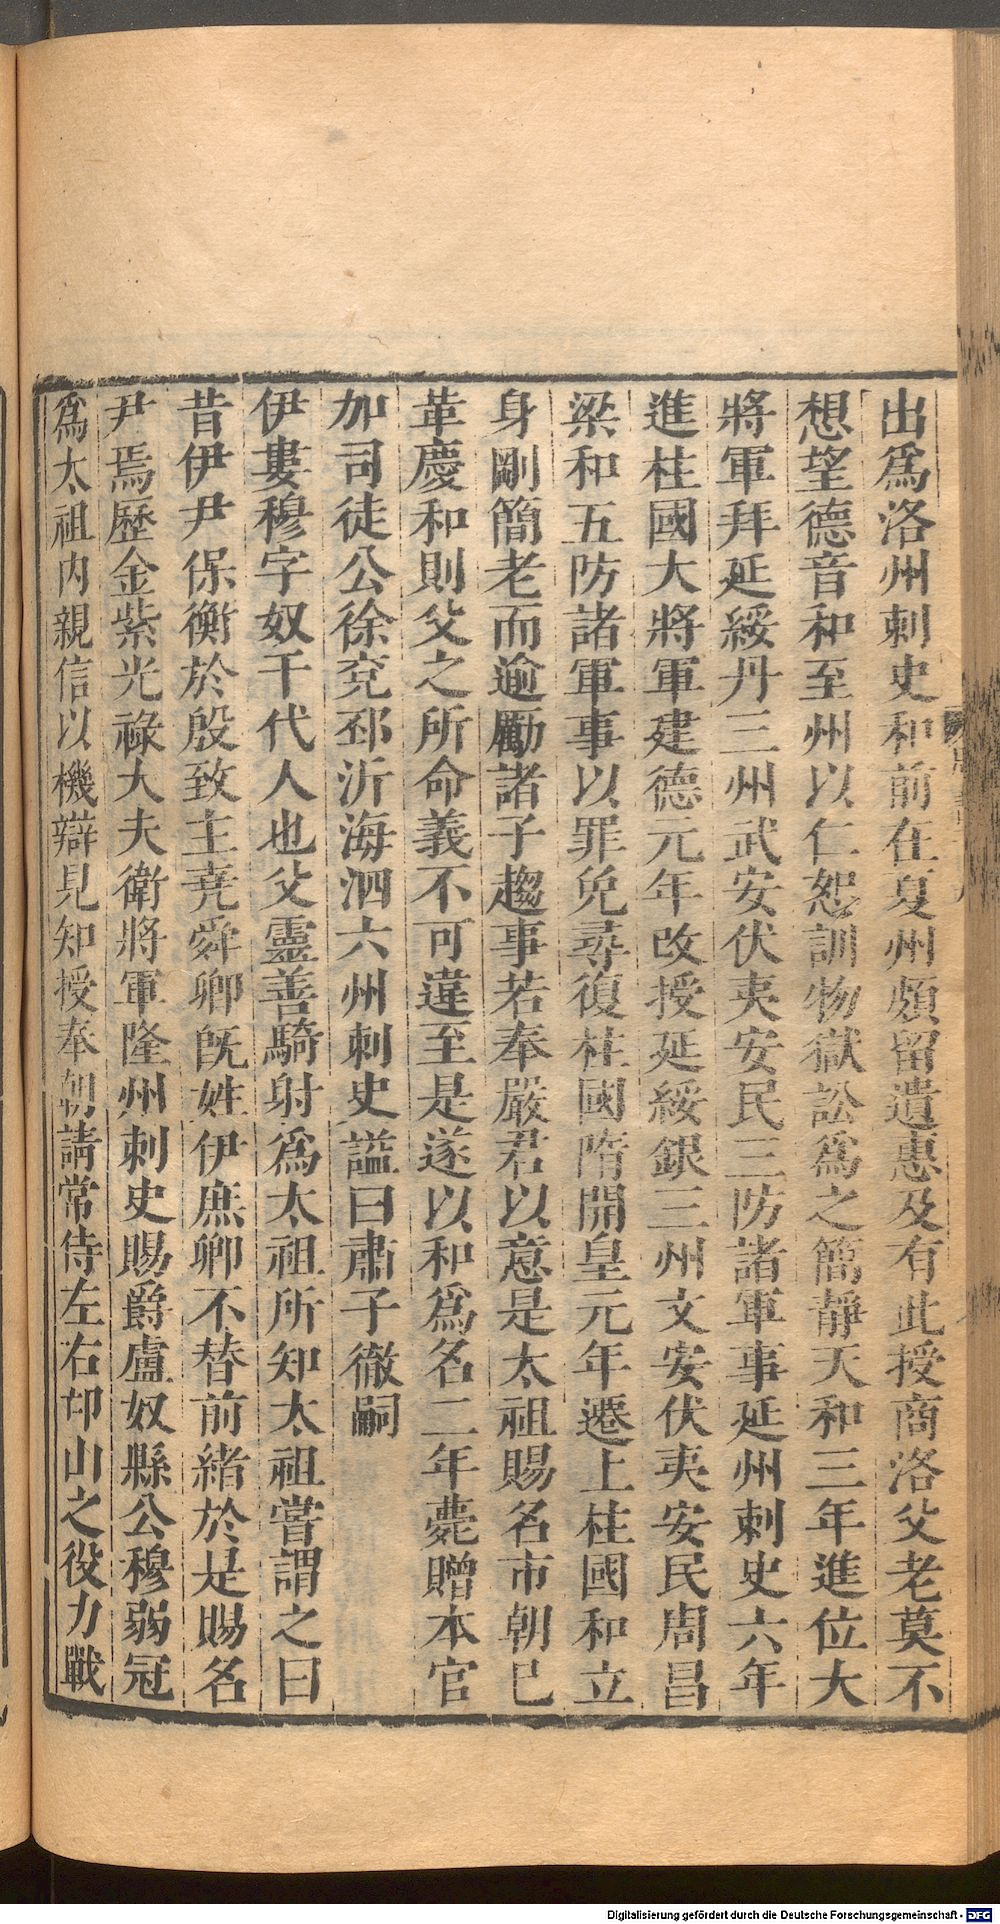 出爲洛州刺史和前在夏州頗留遺惠及有此授商洛父老莫不
想望德音和至州以仁恕訓物獄訟爲之簡靜天和三年進位大
將軍拜延綏丹三州武安伏夷安民三防諸軍事延州刺史六年
進柱國大將軍建德元年改授延綏銀三州文安伏夷安民周昌
梁和五防諸軍事以罪免尋復柱國隋開皇元年遷上柱國和立
身剛簡老而逾勵諸子趨事若奉嚴君以意是太祖賜名市朝已
革慶和則父之所命義不可違至是遂以和爲名二年薨贈本官
加司徒公徐兗邳沂海泗六州刺史謚曰肅子徹嗣
伊婁穆字奴干代人也父靈善騎射爲太祖所知太祖嘗謂之曰
昔伊尹保衡於殷致主堯舜卿既姓伊庶卿不替前緒於是賜名
尹焉歷金紫光祿大夫衛將軍隆州刺史賜爵盧奴縣公穆弱冠
爲太祖内親信以機辯見知授奉朝請常侍左右邙山之役力戰
Digitalisierung gefördert durch die Deutsche Forschungsgemeinschaft - DFG